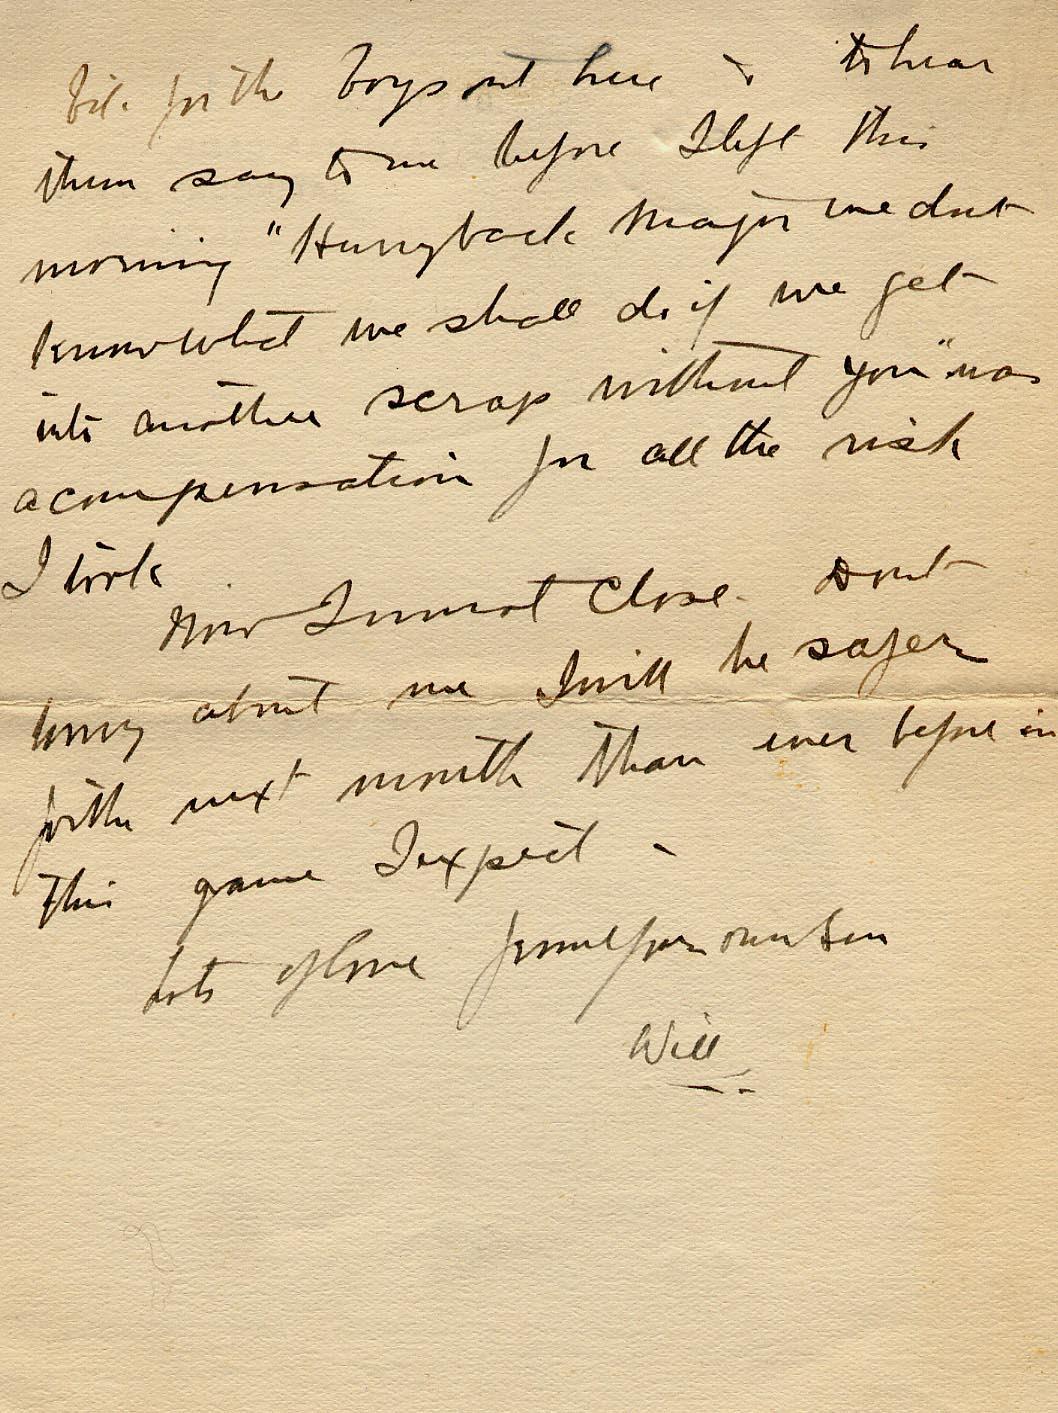 bit for the boys out here & to hear
them say to me before I left this
morning "Hurry back Major we dont
know what we shall do if we get
into another scrap without you" was
a compensation for all the risk
I took
Now I must close. Dont
worry about me I will be safer
for the next month than ever before in
this game I expect -
Lots of love from your own son
Will